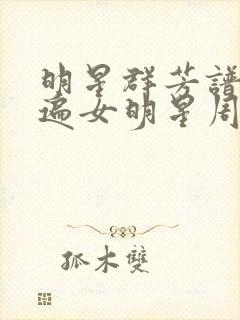 明星群芳譜
遍女明星周
孤木雙